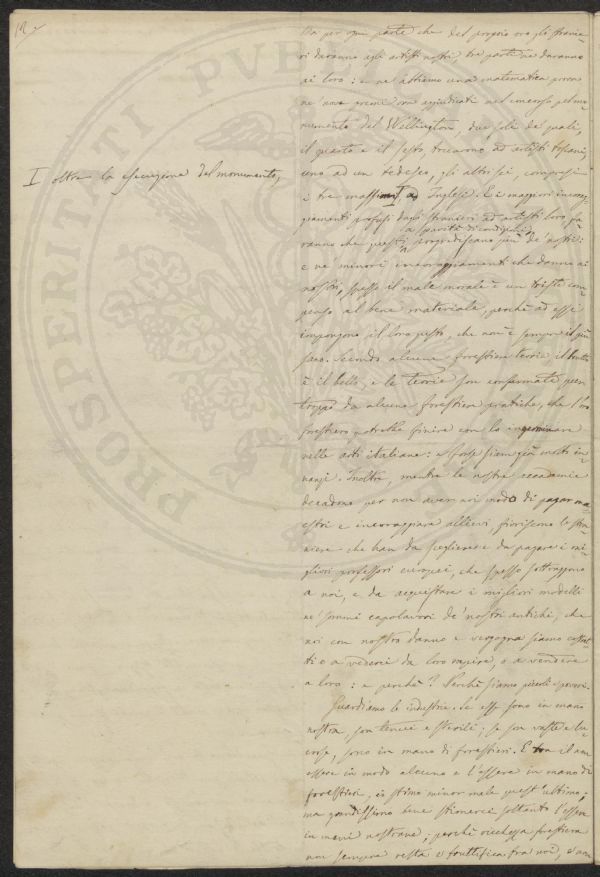 12
Ma per ogni parte che del proprio oro gli stranie-
ri daranno agli artisti nostri, tre parti ne daranno
ai loro: e ne abbiamo una matematica prova
ne' nove premi ora aggiudicati nel concorso pel mo-
numento del Wellington, due soli de' quali,
il quarto e il sesto, toccarono ad artisti toscani;
uno ad un tedesco, gli altri sei, compresi
I oltre la esecuzione del monumento,
i tre massimi I ad Inglesi. E i maggiori incorag-
giamenti profusi dagli stranieri ad artisti loro fa-
a parità di condizioni
ranno che questi progrediscano più de' nostri:
e ne' minori incoraggiamenti che danno ai
nostri, spesso il male morale è un triste com-
penso al bene materiale, perchè ad essi
impongono il loro gusto, che non è sempre il più
sano. Secondo alcune forestiere teorie il brutto
è il bello, e le teorie son confermate pur
troppo da alcune forestiere pratiche, che l'oro
forestiero potrebbe finire con lo
nelle arti italiane: e forse siam già molto in-
nanzi. Inoltre, mentre le nostre accademie
decadono per non aver noi modo di pagar ma-
estri e incoraggiare allievi, fioriscono le stra-
niere che han da scegliere e da pagare i mi-
gliori professori europei, che spesso sottraggono
a noi, e da acquistare i migliori modelli
ne' sommi capolavori de' nostri antichi, che
noi con nostro danno e vergogna siamo costret-
ti o a vederci da loro rapire, o a vendere
a loro: e perchè? Perchè siamo piccoli e poveri.
Guardiamo le industrie. Se esse sono in mano
nostra, son tenui e sterili; se son vaste e lu-
crose, sono in mano di forestieri. E tra il non
essere in modo alcuno e l'essere in mano di
forestieri, io stimo minor male quest'ultimo;
ma grandissimo bene stimerei soltanto l'essere
in mani nostrane; perchè ricchezza forestiera
non sempre resta e fruttifica fra noi, e non
PROSPERITATI PVBL